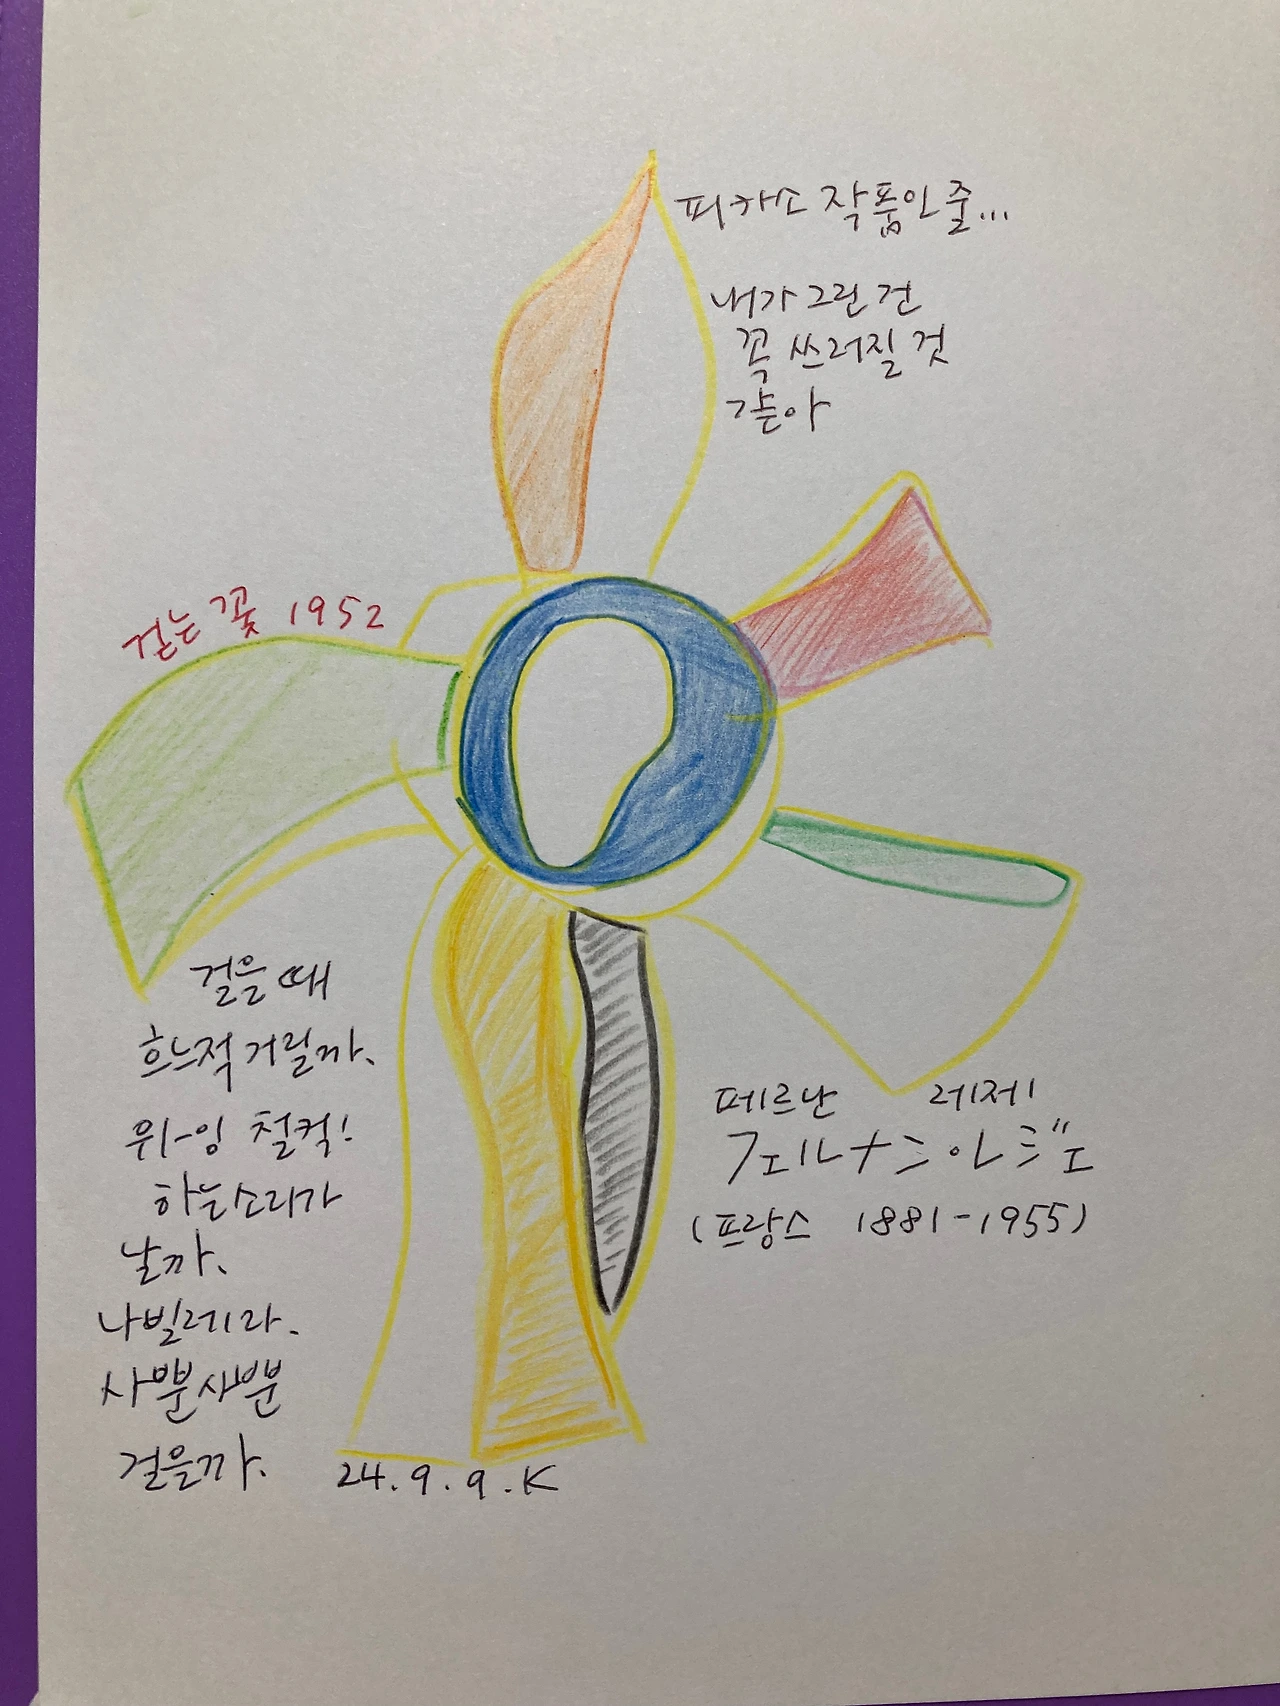 피카소 작품인 줄...
내가 그린 건
꼭 쓰러질 것
같아
걷는 꽃 1952
걸을 때
흐느적 거릴까.
위-잉 철컥!
하는 소리가
날까.
나빌레라.
사뿐사뿐
걸을까.
페르난 레제
フェルナン・レジェ
(프랑스 1881-1955)
24.9.9.K